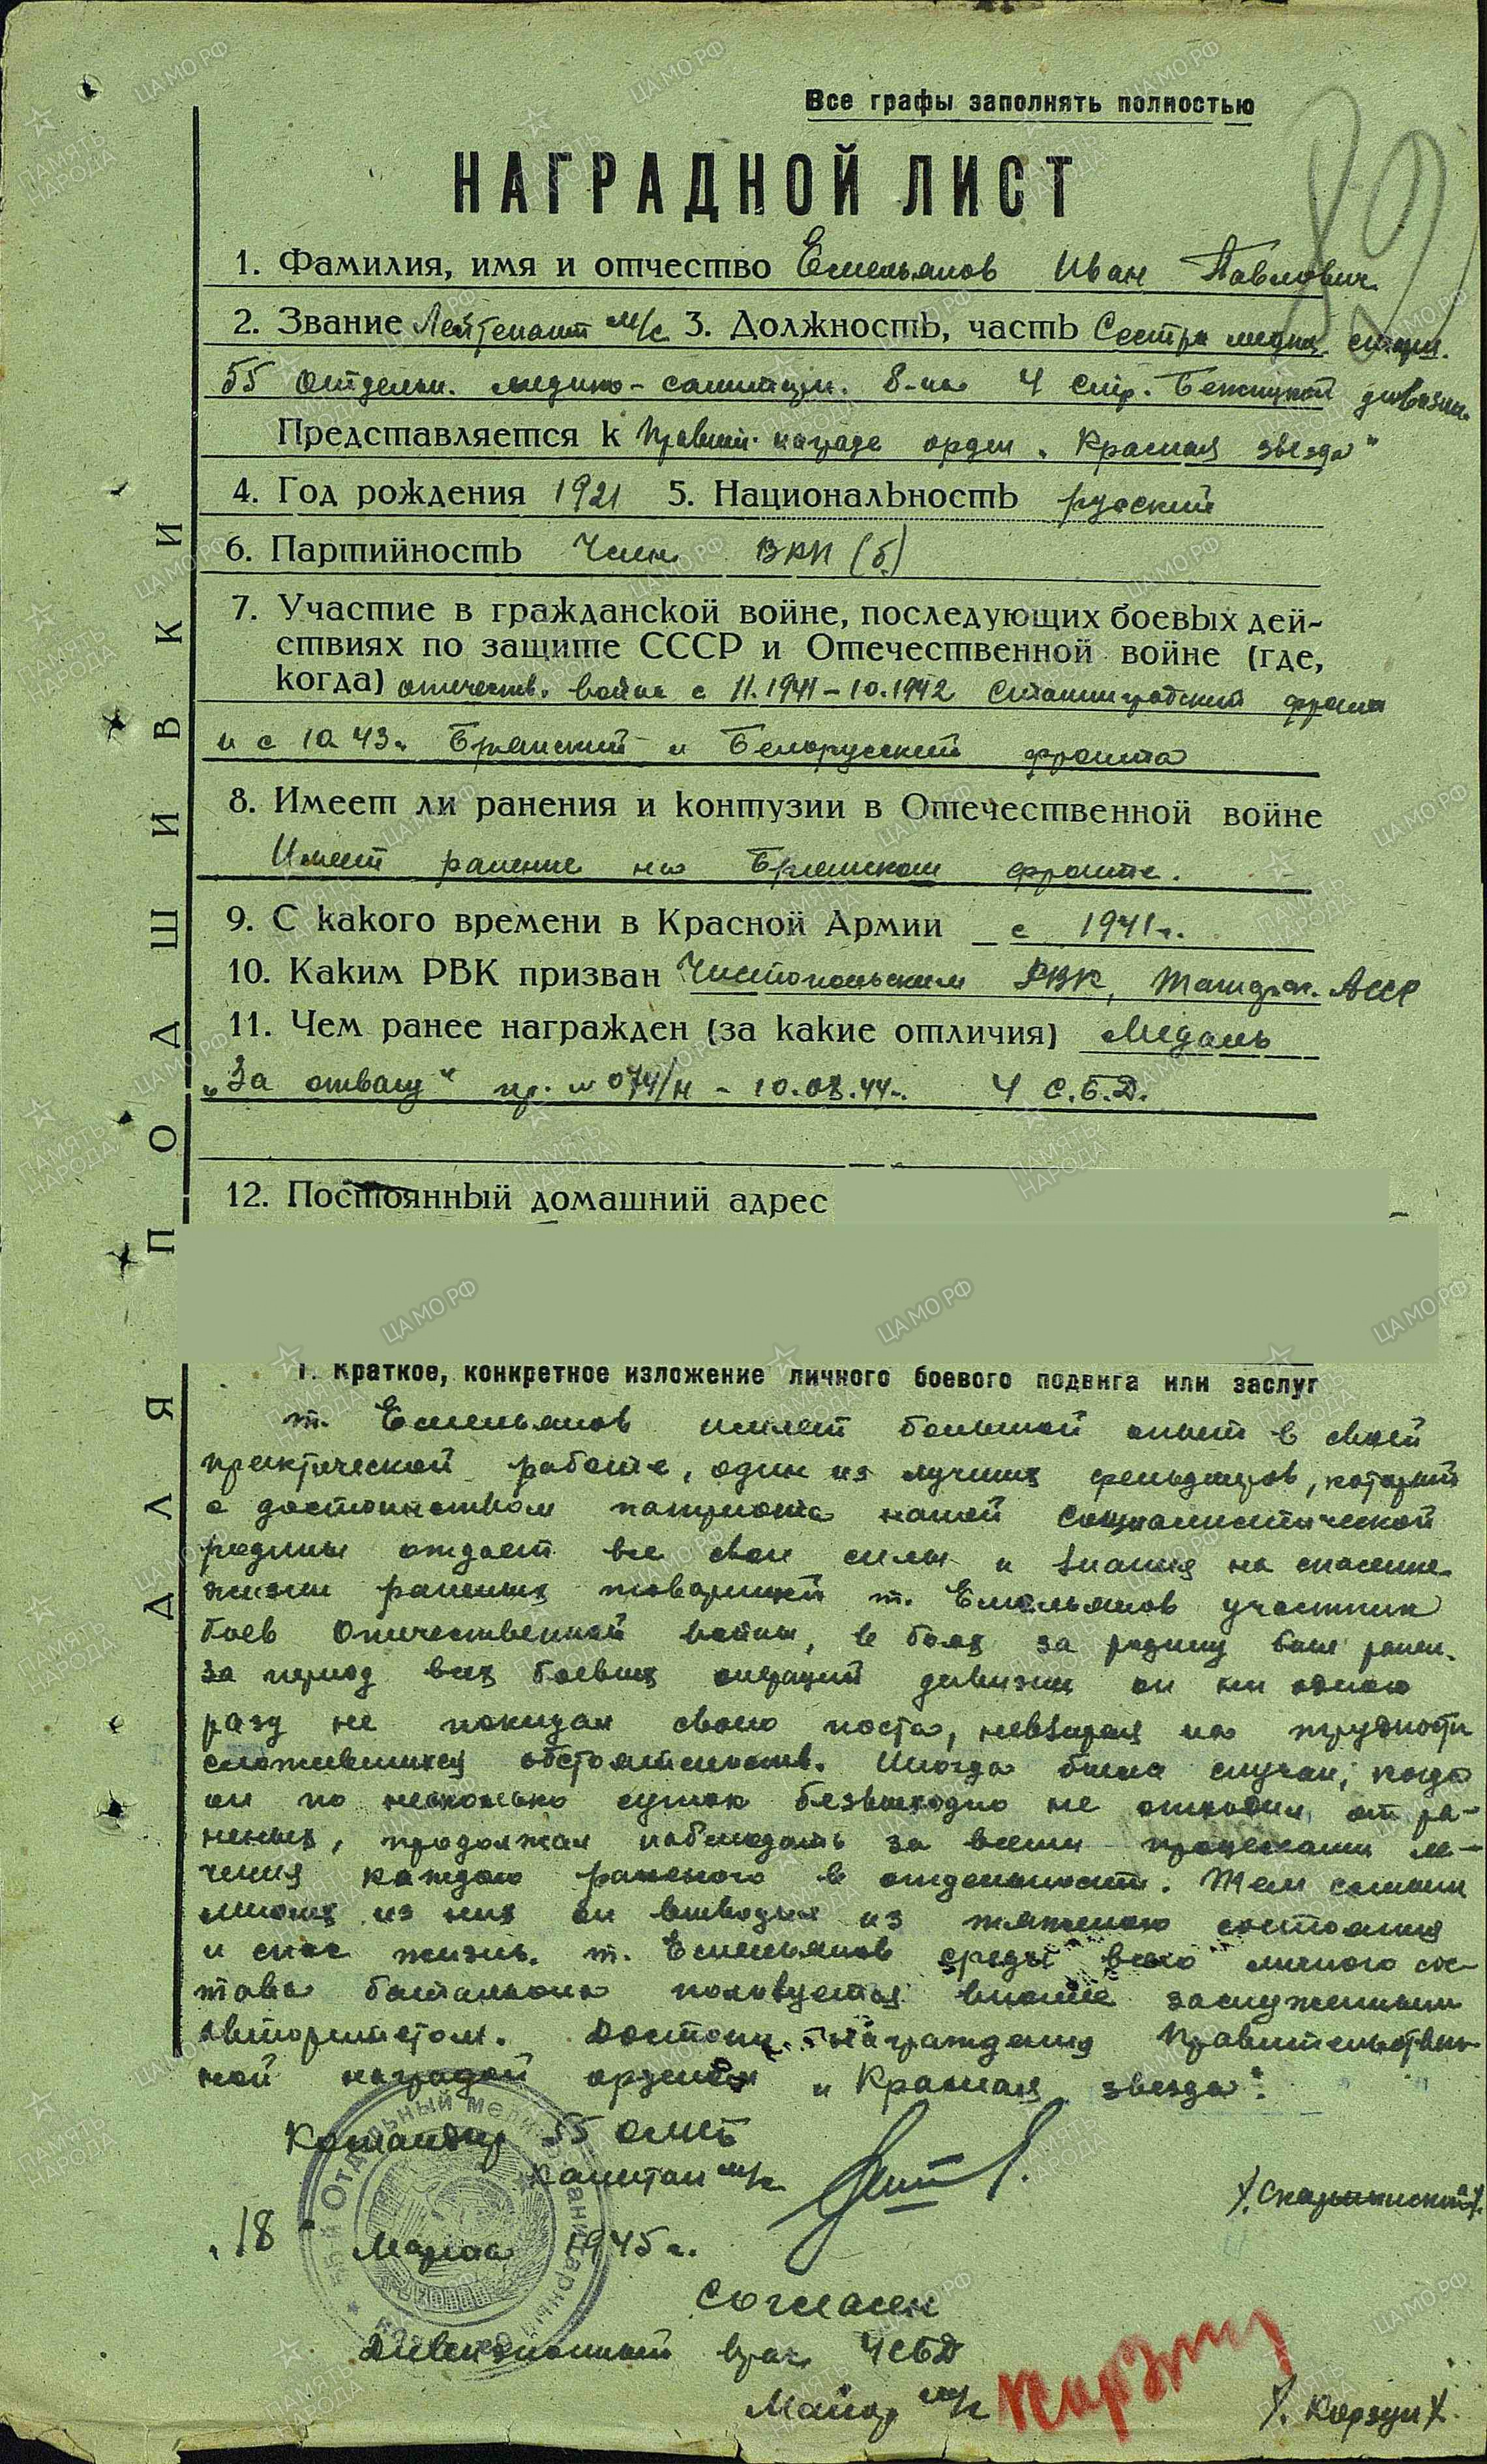 Все графы заполнять полностью
89
НАГРАДНОЙ ЛИСТ
1. Фамилия, имя и отчество Емельянов Иван Павлович
2. Звание Лейтенант м/с 3. Должность, часть Сестра медиц.
55 отдельн. медико-санитарн. б-на 4 стр. Бежицкой дивизии.
Представляется к правит. награде орден „Красная звезда"
4. Год рождения 1921 5. Национальность русский
6. Партийность Член ВКП(б)
7. Участие в гражданской войне, последующих боевых дей-
ствиях по защите СССР и Отечественной войне (где,
когда) отечеств. война с 11.1941-10.1942 Сталинградский фронт
и с 10.43г. Брянский и Белорусский фронта
8. Имеет ли ранения и контузии в Отечественной войне
Имеет ранение на Брянском фронте.
9. С какого времени в Красной Армии с 1941г.
10. Каким РВК призван Чистопольским РВК, Татарск. АССР
11. Чем ранее награжден (за какие отличия) Медаль
„За отвагу" пр. № 074/н - 10.08.44г. 4 С.Б.Д.
12. Постоянный домашний адрес
1. Краткое, конкретное изложение личного боевого подвига или заслуг
т. Емельянов имеет большой опыт в своей
практической работе, один из лучших фельдшеров, который
с достоинством патриота нашей социалистической
родины отдает все свои силы и знания на спасение
жизни раненых товарищей т. Емельянов участник
боев Отечественной войны, в боях за родину был ранен.
За период всех боевых операций дивизии он ни одного
разу не покидал своего поста, невзирая на трудности
сложившихся обстоятельств. Иногда были случаи, когда
он по несколько суток безвыходно не отходил от ра-
неных, продолжал наблюдать за всеми процессами ле-
чения каждого раненого в отдельности. Тем самым
многих из них он выводил из тяжелого состояния
и спас жизнь. т. Емельянов среди всего личного сос-
тава батальона пользуется вполне заслуженным
авторитетом. Достоин награждения Правительствен-
ной наградой орденом „Красная звезда".
Командир 55 омсб
капитан м/с
/Скарынинский/
„18" Марта 1945г.
55-й Отдельный медико-санитарный
Согласен
Дивизионный врач 4СБД
Майор м/с Корзун /Корзун/
ДЛЯ ПОДШИВКИ
ПАМЯТЬ НАРОДА
ЦАМО.РФ